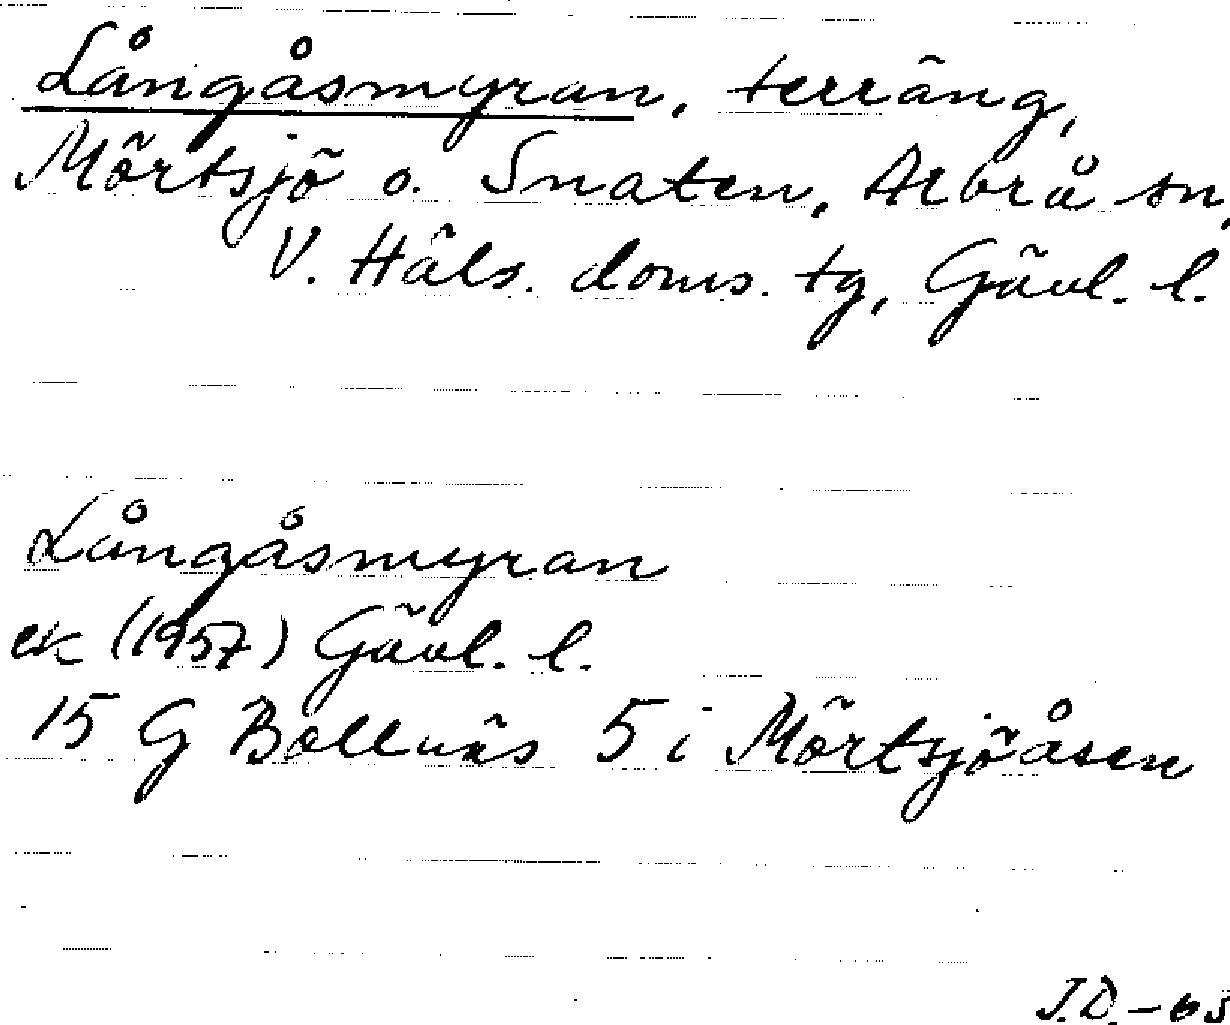 Långåsmyran, terräng,
Mörtsjö o. Snaten, Arbrå sn,
V. Häls. doms. tg, Gävl. l.
Långåsmyran
ek (1957) Gävl. l.
15 G Bollnäs 5 i Mörtsjöåsen
J.D. - 65